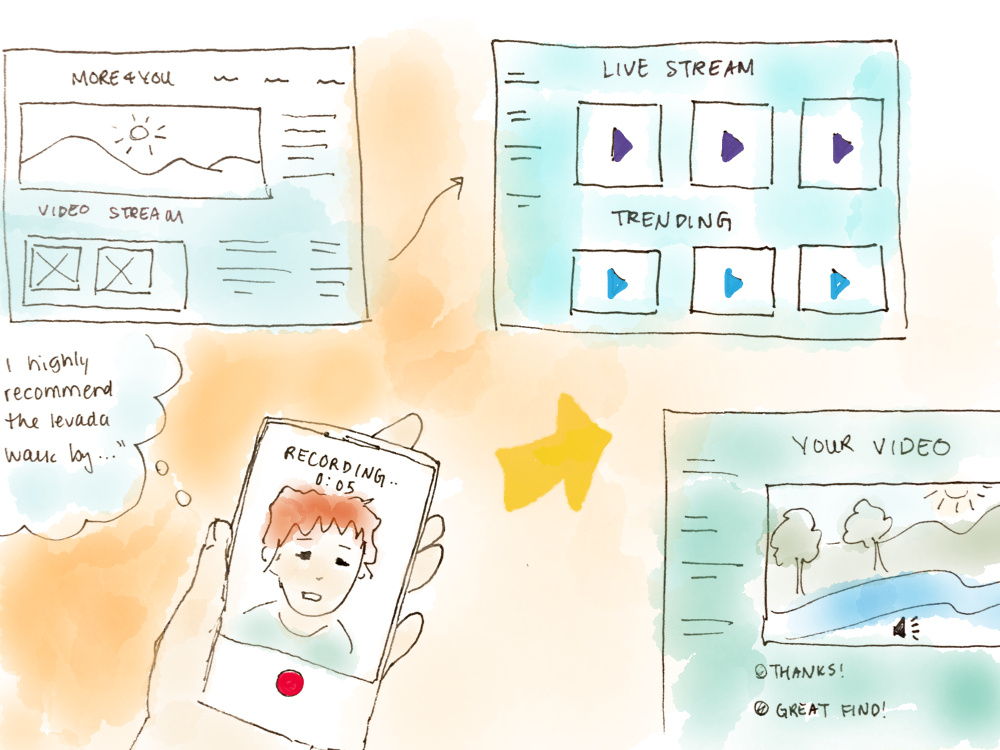 MORE4YOU
VIDEO STREAM
LIVE STREAM
TRENDING
I highly
recommend
the levada
walk by..."
RECORDING..
0:05
YOUR VIDEO
THANKS!
GREAT FIND!